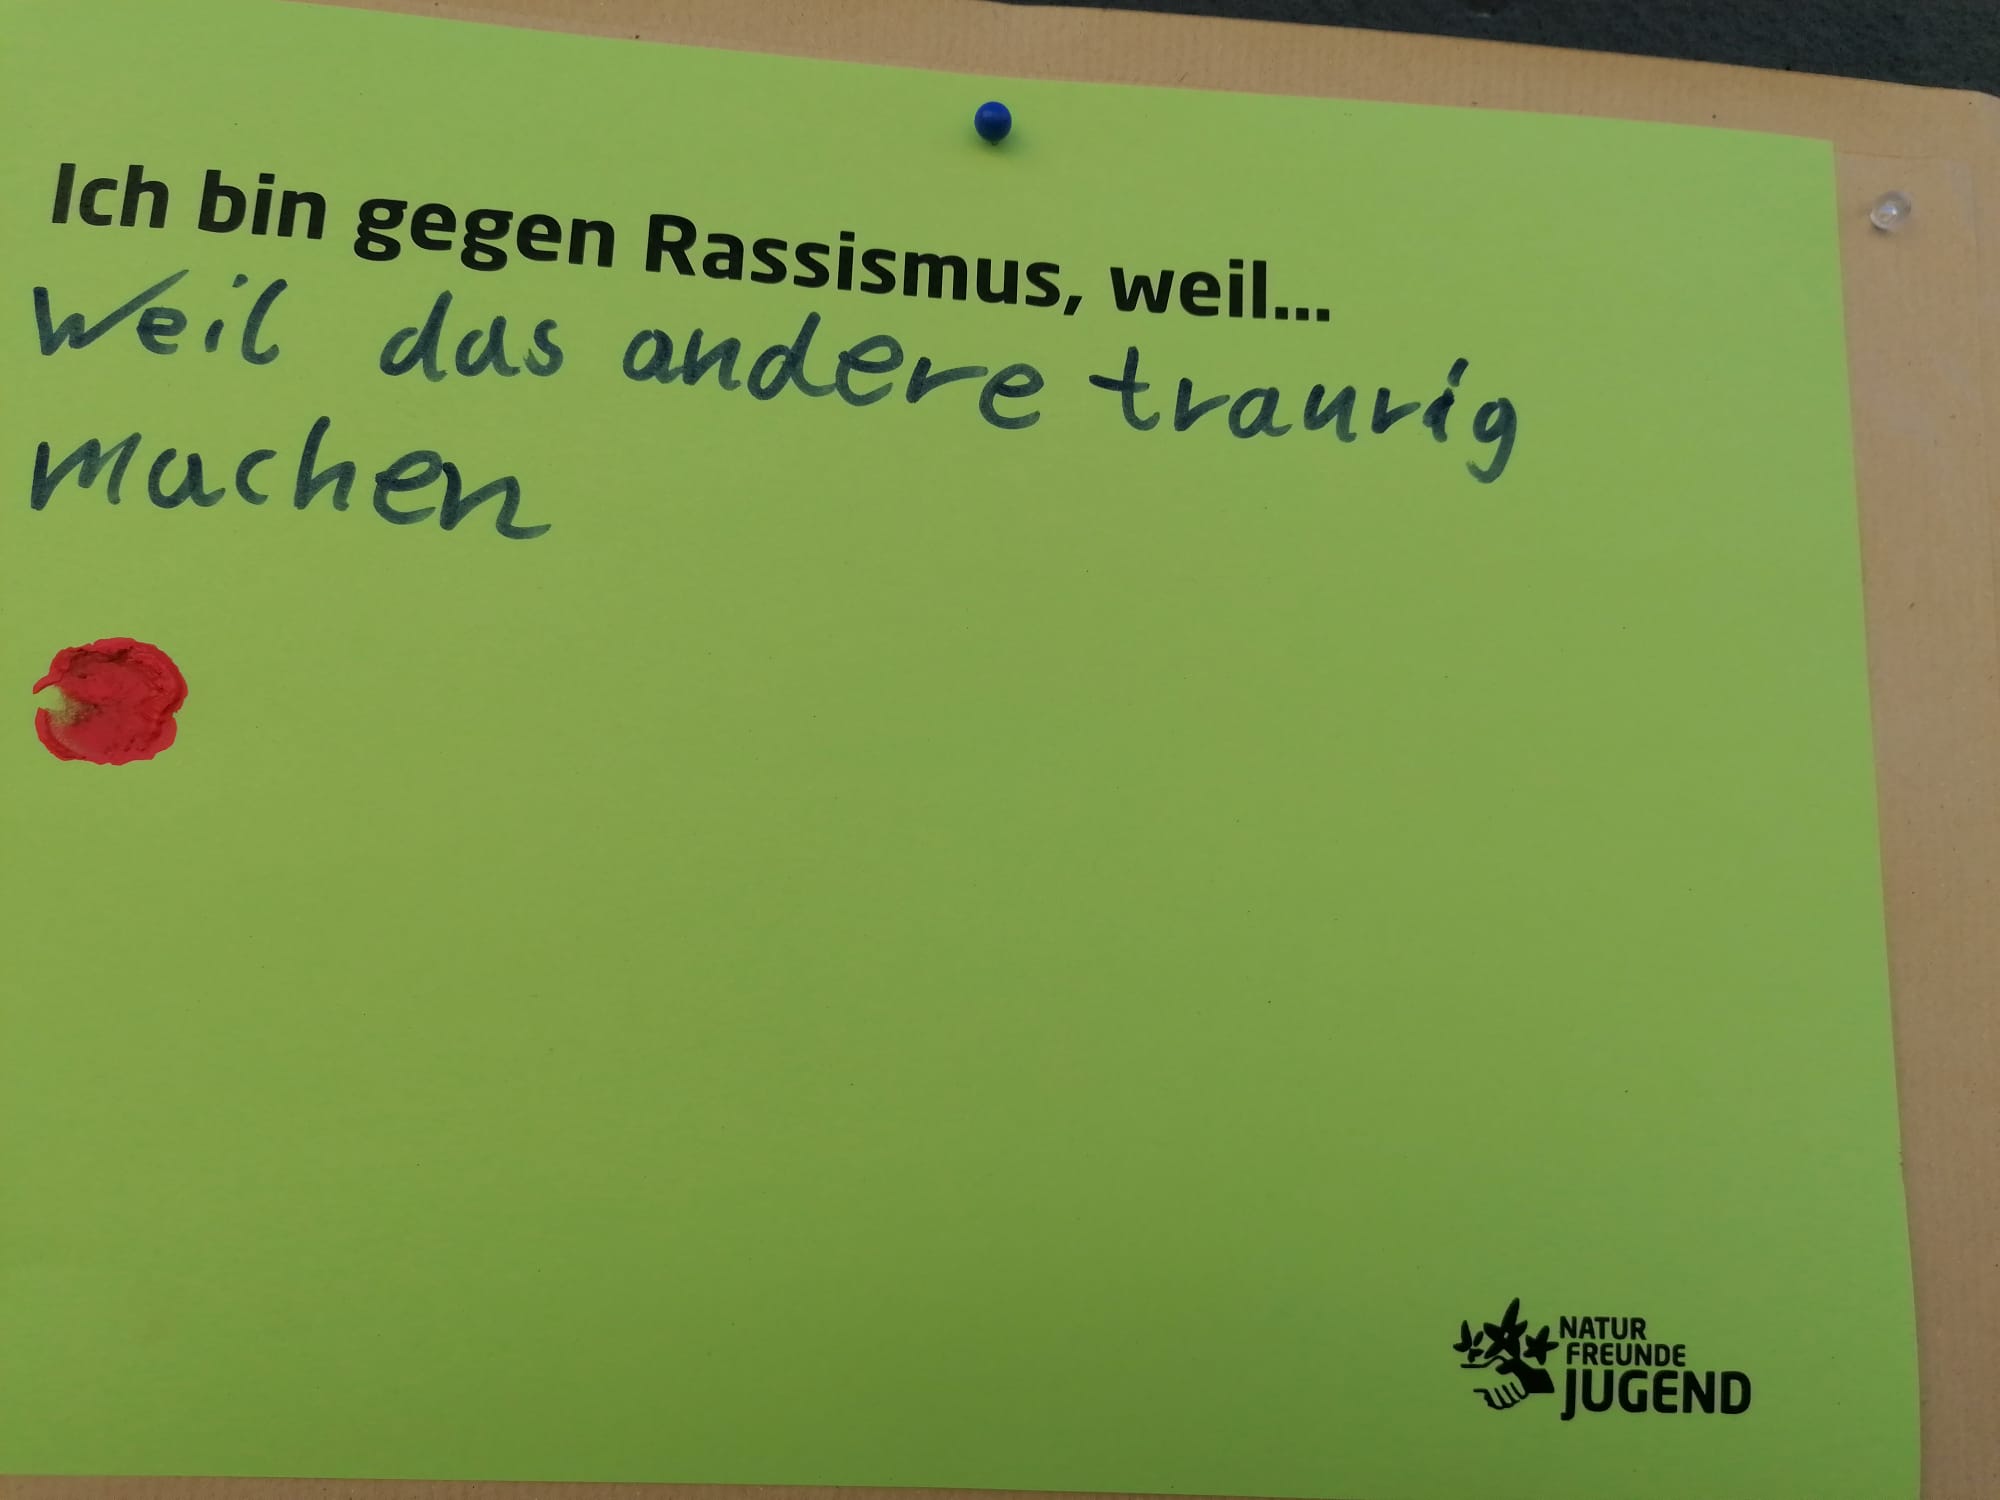 Ich bin gegen Rassismus, weil...
Weil das andere traurig
machen
NATUR
FREUNDE
JUGEND